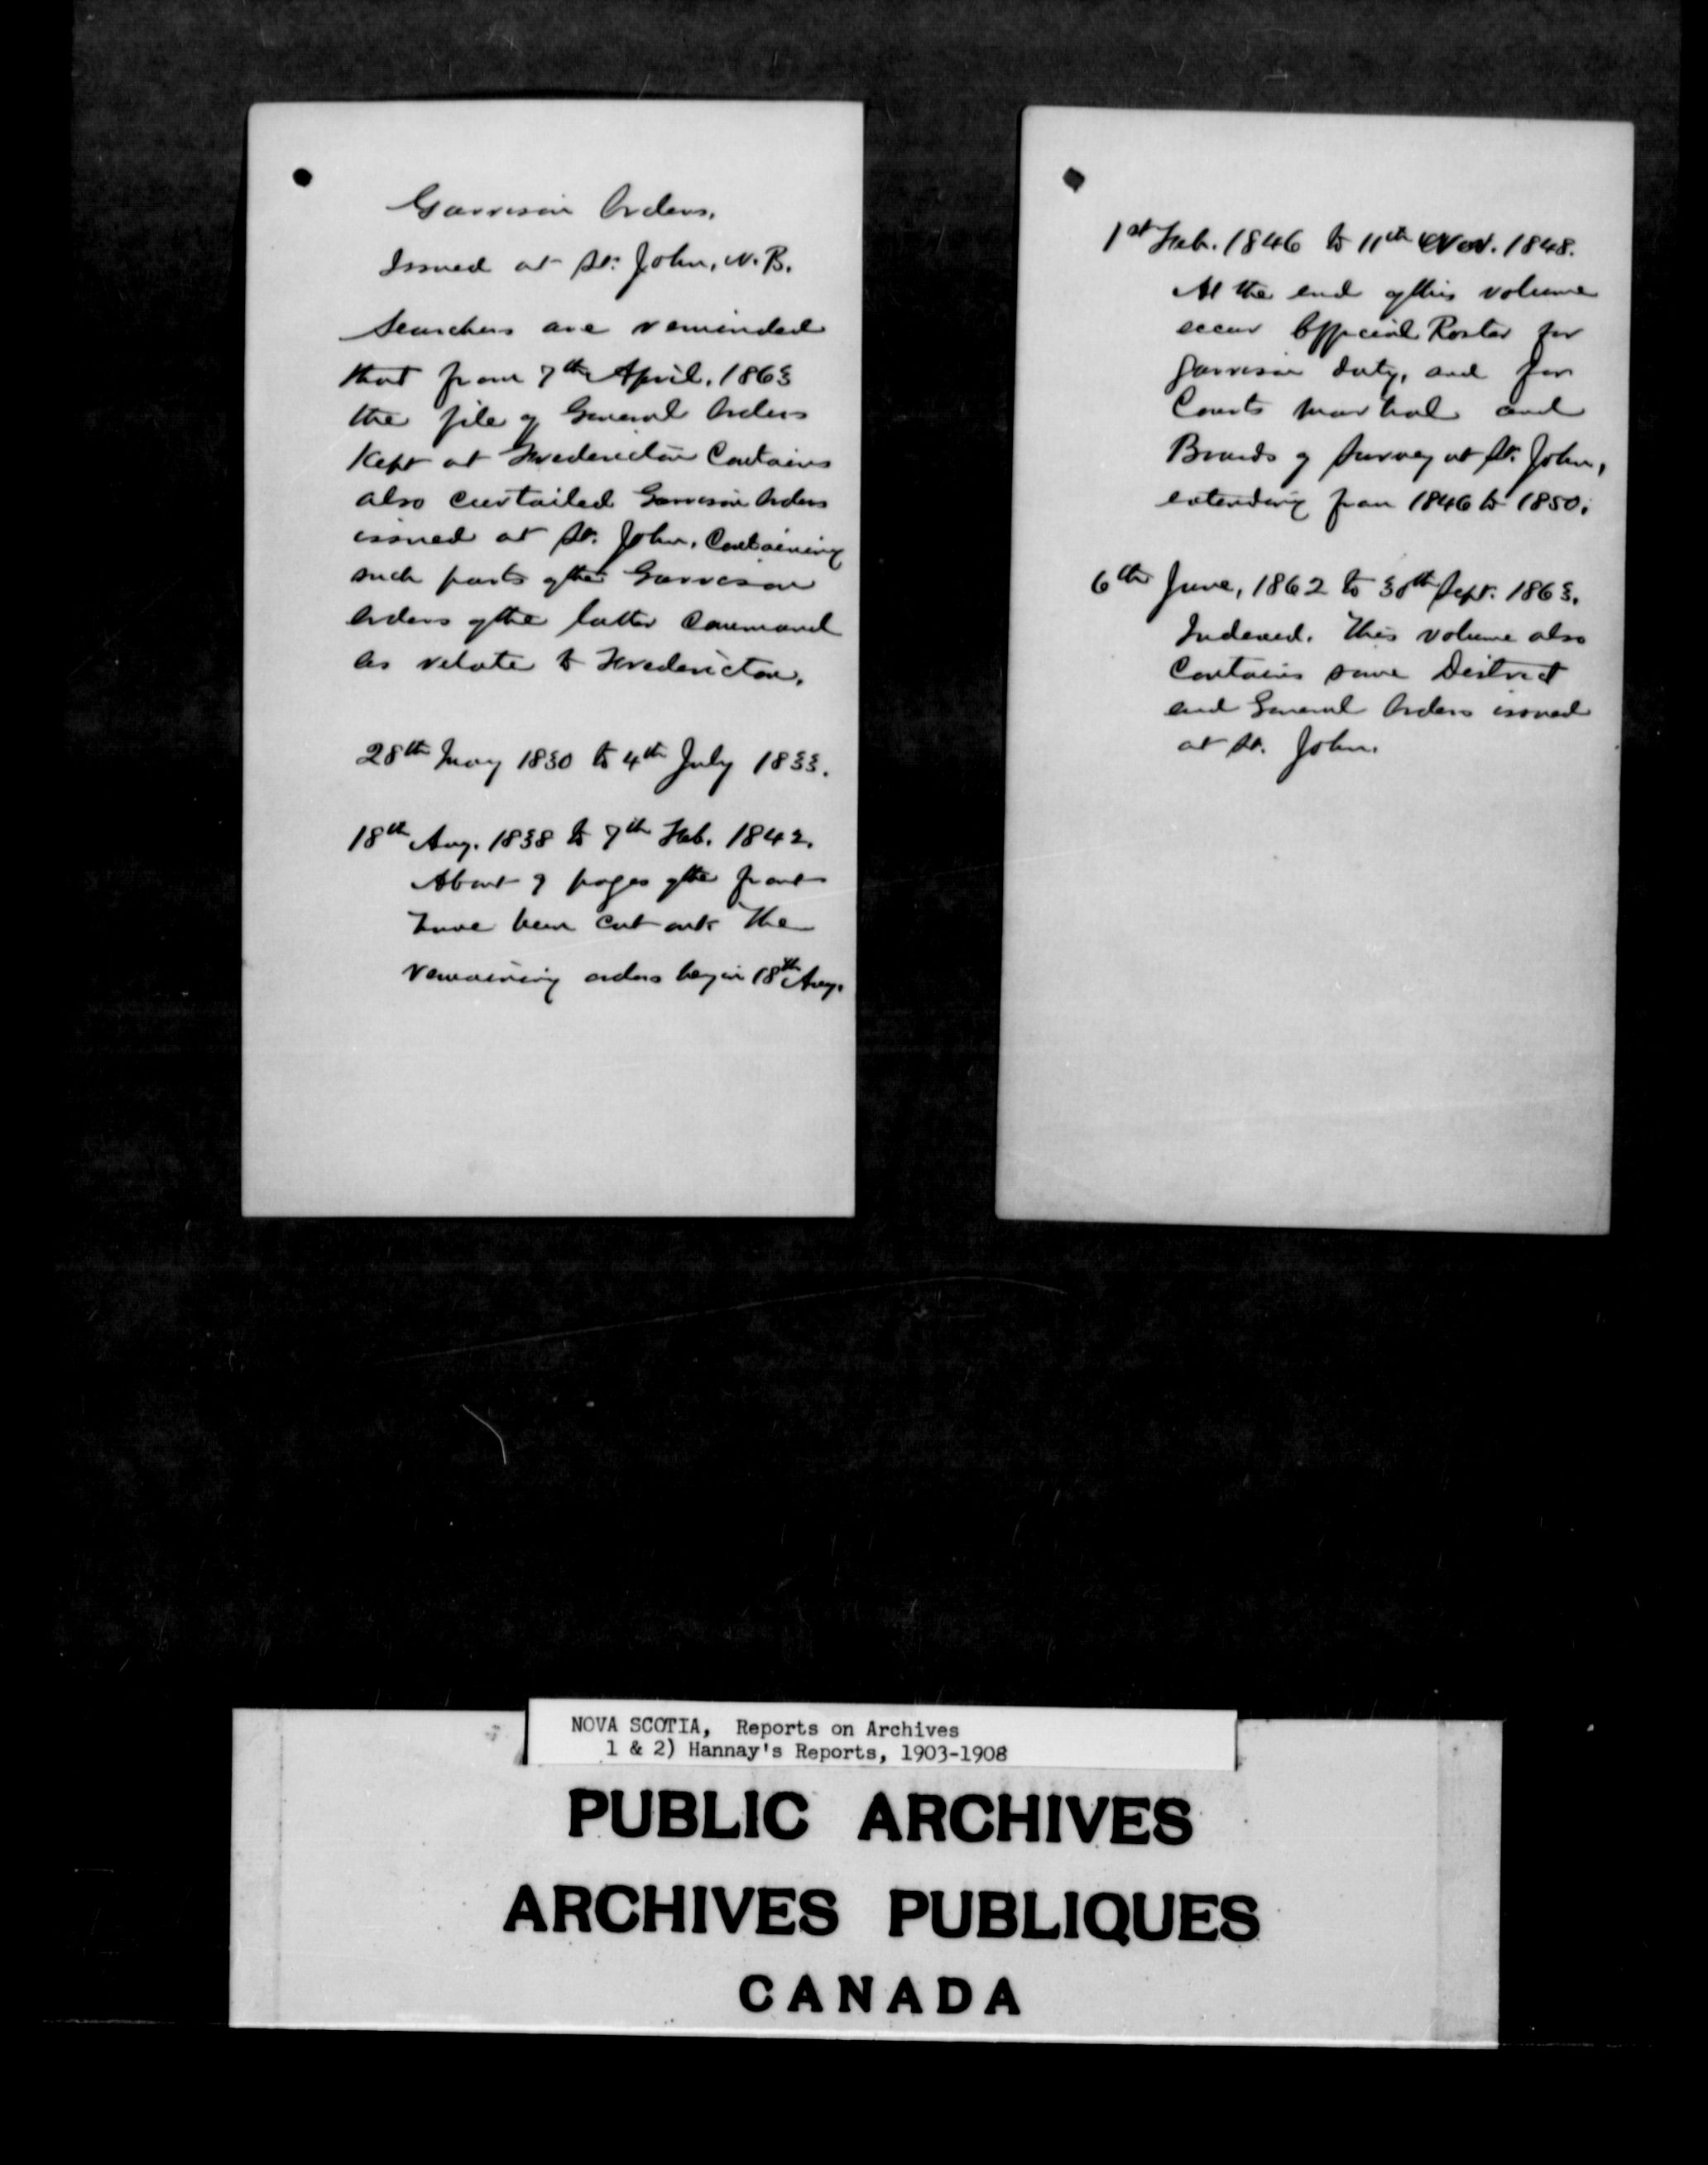 Garrison Orders.
Issued at St. John, N. B.
Searchers are reminded
that from 7th April, 1863
the file of General Orders
Kept at Fredericton Contains
also curtailed Garrison Orders
issued at St. John, Containing
such parts of the Garrison
Orders of the latter Command
as relate to Fredericton.
28th May 1830 to 4th July 1833.
18th Aug. 1838 to 7th Feb. 1842.
About 9 pages of the front
have been cut out. The
remaining orders begin 18th Aug.
1st Feb. 1846 to 11th Nov. 1848.
At the end of this volume
occur Official Roster for
garrison duty, and for
Courts martial and
Boards of Survey at St. John,
extending from 1846 to 1850.
6th June, 1862 to 30th Sept. 1863.
Indexed. This volume also
Contains some District
and General Orders issued
at St. John.
NOVA SCOTIA, Reports on Archives
1 & 2) Hannay's Reports, 1903-1908
PUBLIC ARCHIVES
ARCHIVES PUBLIQUES
CANADA